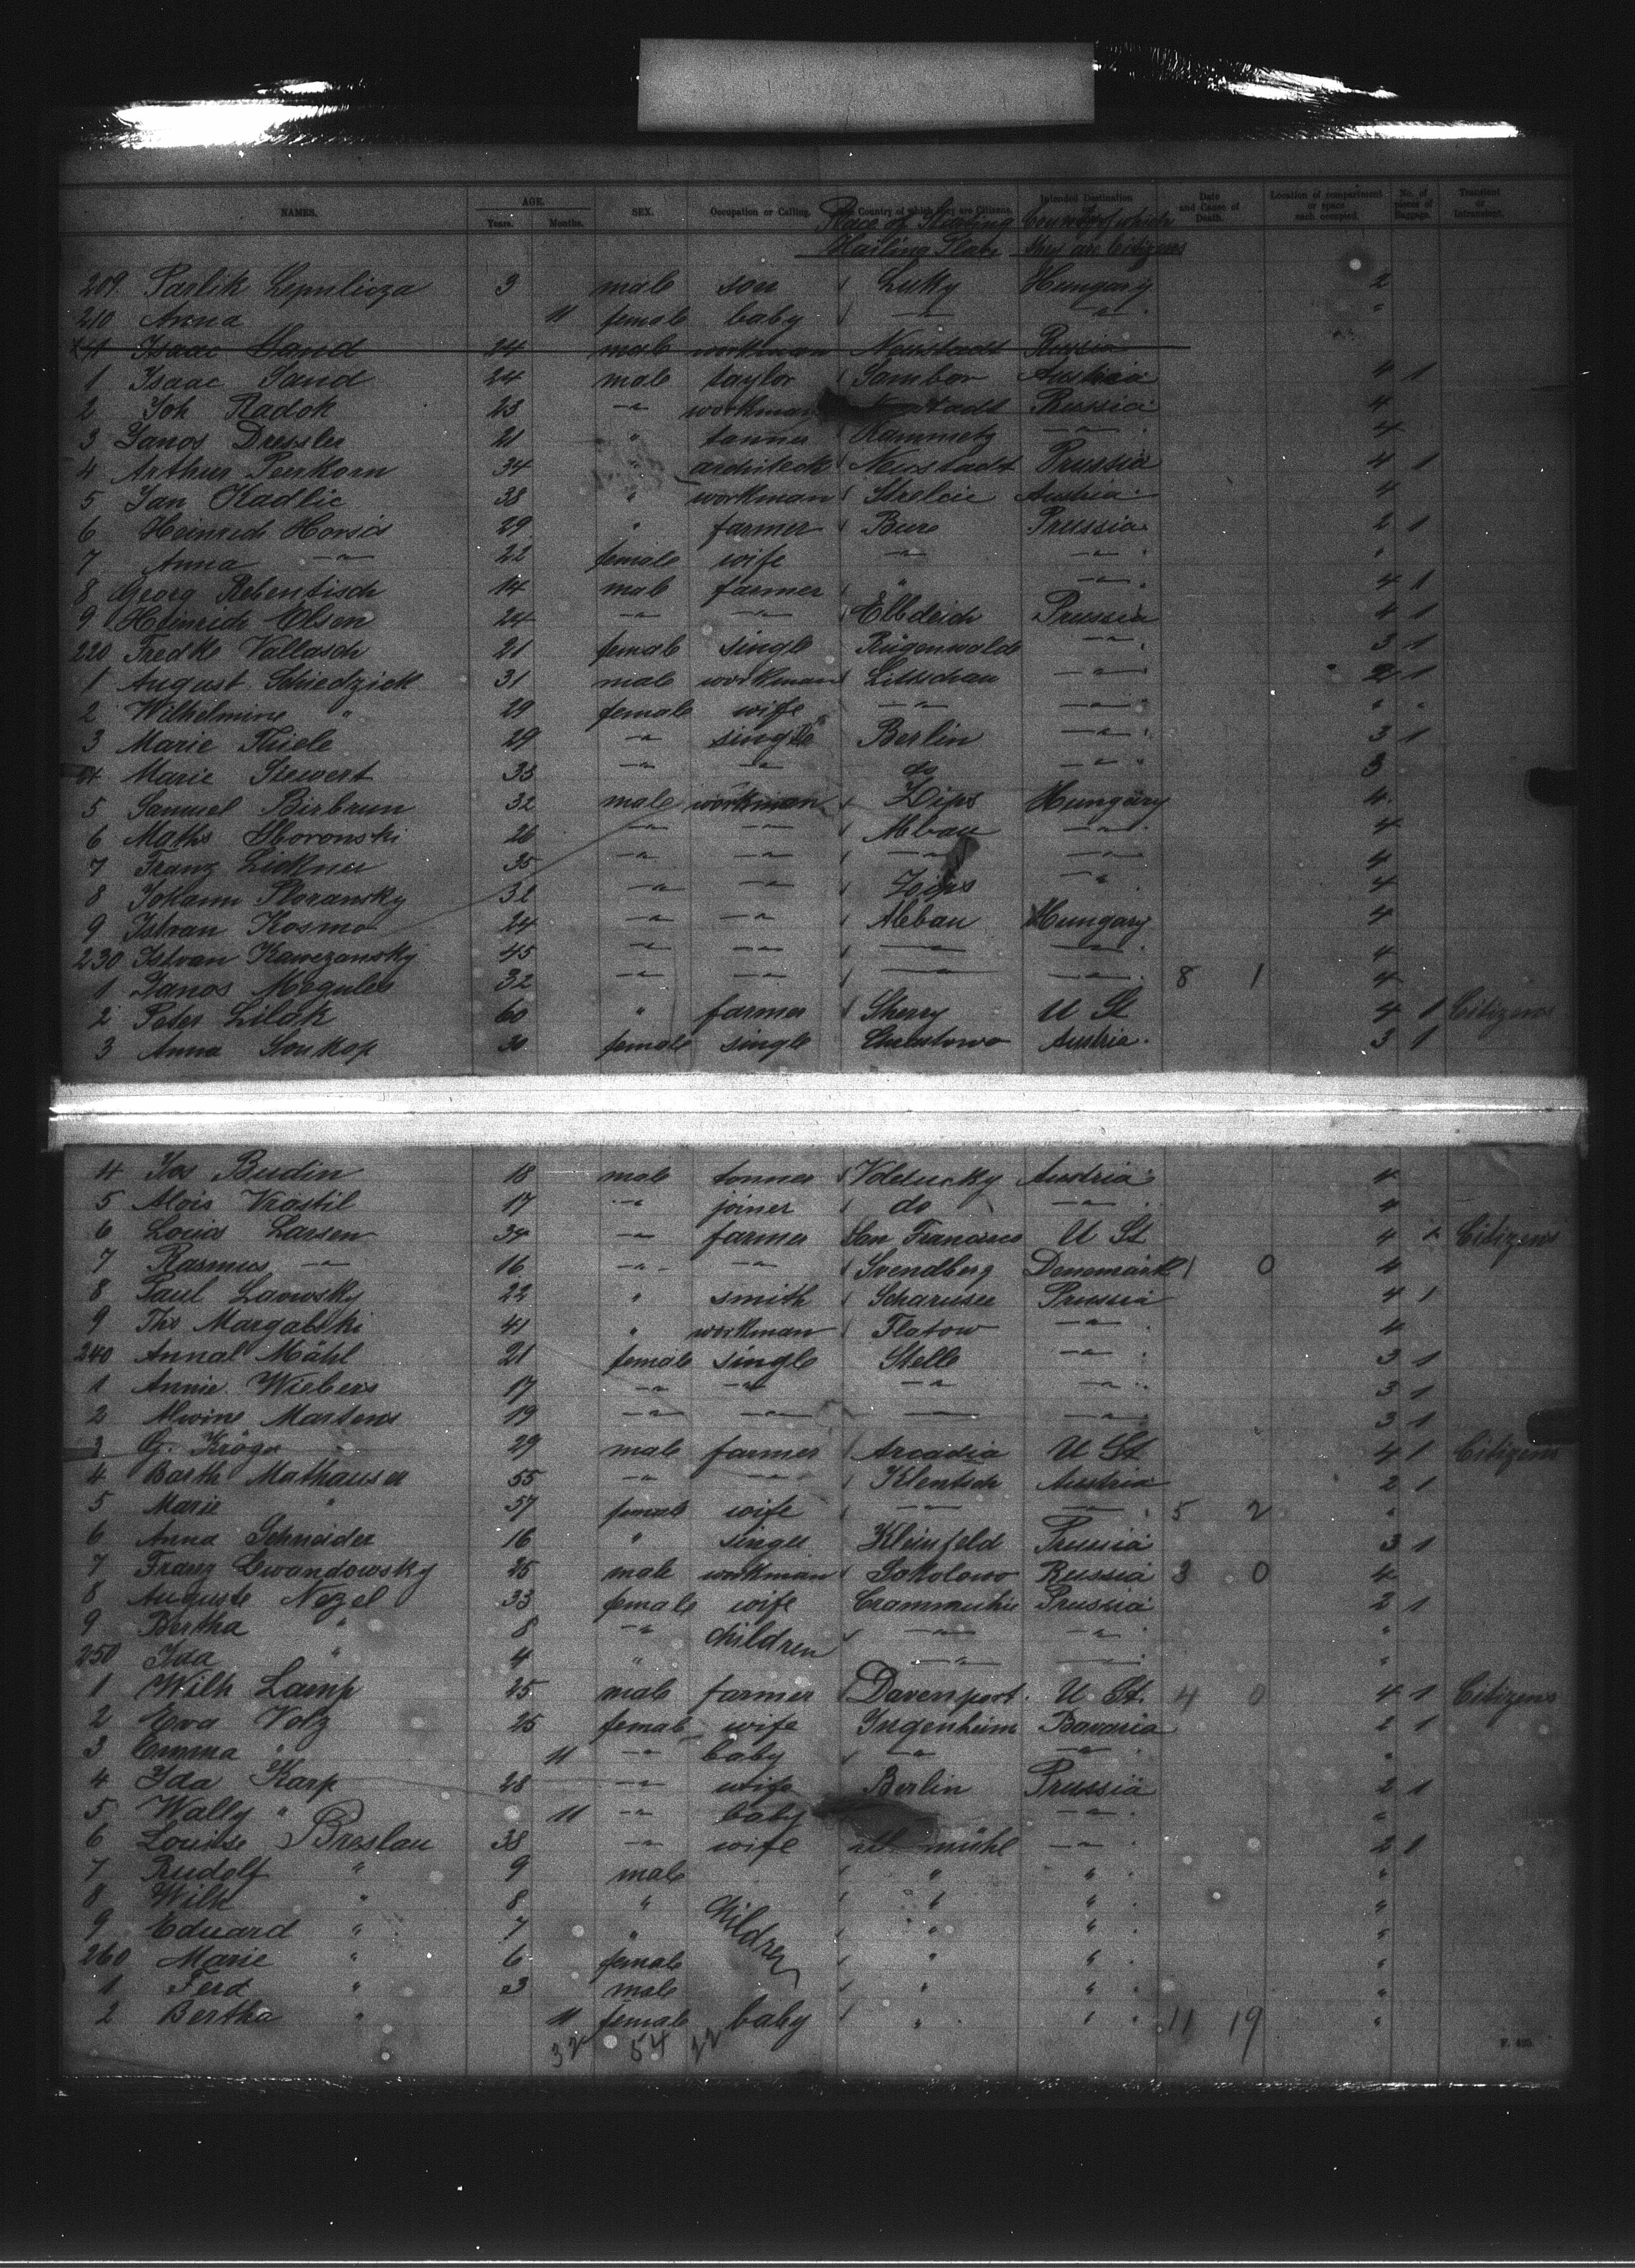 NAMES. AGE. Years. Months. SEX. Occupation or Calling. The Country of which they are Citizens. Intended Destination Date and Cause of Death. Location of compartment or space each occupied. No. of pieces of Baggage. Transient or Intransient.
Place of Starting Country of which
Mailing Place they are Citizens
209 Pavlik 3 male son Luky Hungary 2
210 Anna 11 female baby — " — — " — "
Isaac Sand 24 male workman Neustadt Russia
1 Isaac Sand 24 male taylor Sambor Austria 4 1
2 Joh Radok 23 — " — workman Neustadt Russia 4
3 Janos Dressler 21 " tanner Kammetz — " — 4
4 Arthur Peerkorn 34 " architeck Neustadt Prussia 4 1
5 Jan Kadlic 38 " workman Strelcic Austria 4
6 Heinrich Horsis 29 " farmer Bure Prussia 2 1
7 Anna — " — 22 female wife — " — — " — "
8 Georg Rebentisch 14 male farmer " — " — 4 1
9 Heinrich Olsen 24 — " — — " — Elbdeich Prussia 4 1
220 Fredke Vallasch 21 female single Rügenwalde — " — 3 1
1 August Schiedzick 31 male workman Littschau — " — 2 1
2 Wilhelmine " 29 female wife — " — — " — " "
3 Marie Thiele 29 — " — single Berlin — " — 3 1
4 Marie Siewert 33 — " — — " — do — " — 3
5 Samuel Birbrun 32 male workman Zips Hungary 4
6 Maths Sboronski 26 — " — — " — Abbau — " — 4
7 Franz Lickner 35 — " — — " — — " — — " — 4
8 Johann Sloransky 32 — " — — " — Zips — " — 4
9 Istvan Kosma 24 — " — — " — Abbau Hungary 4
230 Istvan Kawezansky 45 — " — — " — — " — — " — 4
1 Janos Megules 32 — " — — " — — " — — " — 8 1 4
2 Peter Lilak 60 " farmer Sherry U St 4 1 Citizens
3 Anna Soukop 30 female single Austria 3 1
4 Jos Budin 18 male tanner Volducky Austria 4
5 Alois Vrastil 17 — " — joiner do — " — 4
6 Louis Larsen 34 — " — farmer San Francisco U St 4 1 Citizens
7 Rasmus — " — 16 — " — — " — Svendberg Denemark 1 0 4
8 Paul Lavowsky 22 " smith Scharnsee Prussia 4 1
9 Ths Margalski 41 " workman Flatow — " — 4
240 Annal Mähl 21 female single Stelle — " — 3 1
1 Annie Wiebers 17 — " — — " — — " — — " — 3 1
2 Alwine Martens 19 — " — — " — — " — — " — 3 1
3 G. Kröger 29 male farmer Arcadia U St 4 1 Citizens
4 Barth Mathauser 55 — " — — " — Klentsch Austria 2 1
5 Marie " 57 female wife — " — — " — 5 2 "
6 Anna Schneider 16 " single Kleinfeld Prussia 3 1
7 Franz Lewandowsky 25 male workman Sokolowo Russia 3 0 4
8 Auguste Nezel 33 female wife Prussia 2 1
9 Bertha " 8 — " — children — " — — " — "
250 Ida " 4 " — " — — " — "
1 Wilh Lamp 25 male farmer Davenport U St. 4 0 4 1 Citizens
2 Eva Volz 25 female wife Ingenheim Bavaria 2 1
3 Emma " 11 — " — baby — " — — " — "
4 Ida Karp 28 — " — wife Berlin Prussia 2 1
5 Wally " 11 — " — baby — " — "
6 Louise Breslau 38 — " — wife alt mühl — " — 2 1
7 Rudolf " 9 male " " "
8 Wilh " 8 " children " " "
9 Eduard " 7 " " " "
260 Marie " 6 female " " "
1 Ferd " 3 male " " "
2 Bertha " 11 female baby " " 11 19 "
32 54 22